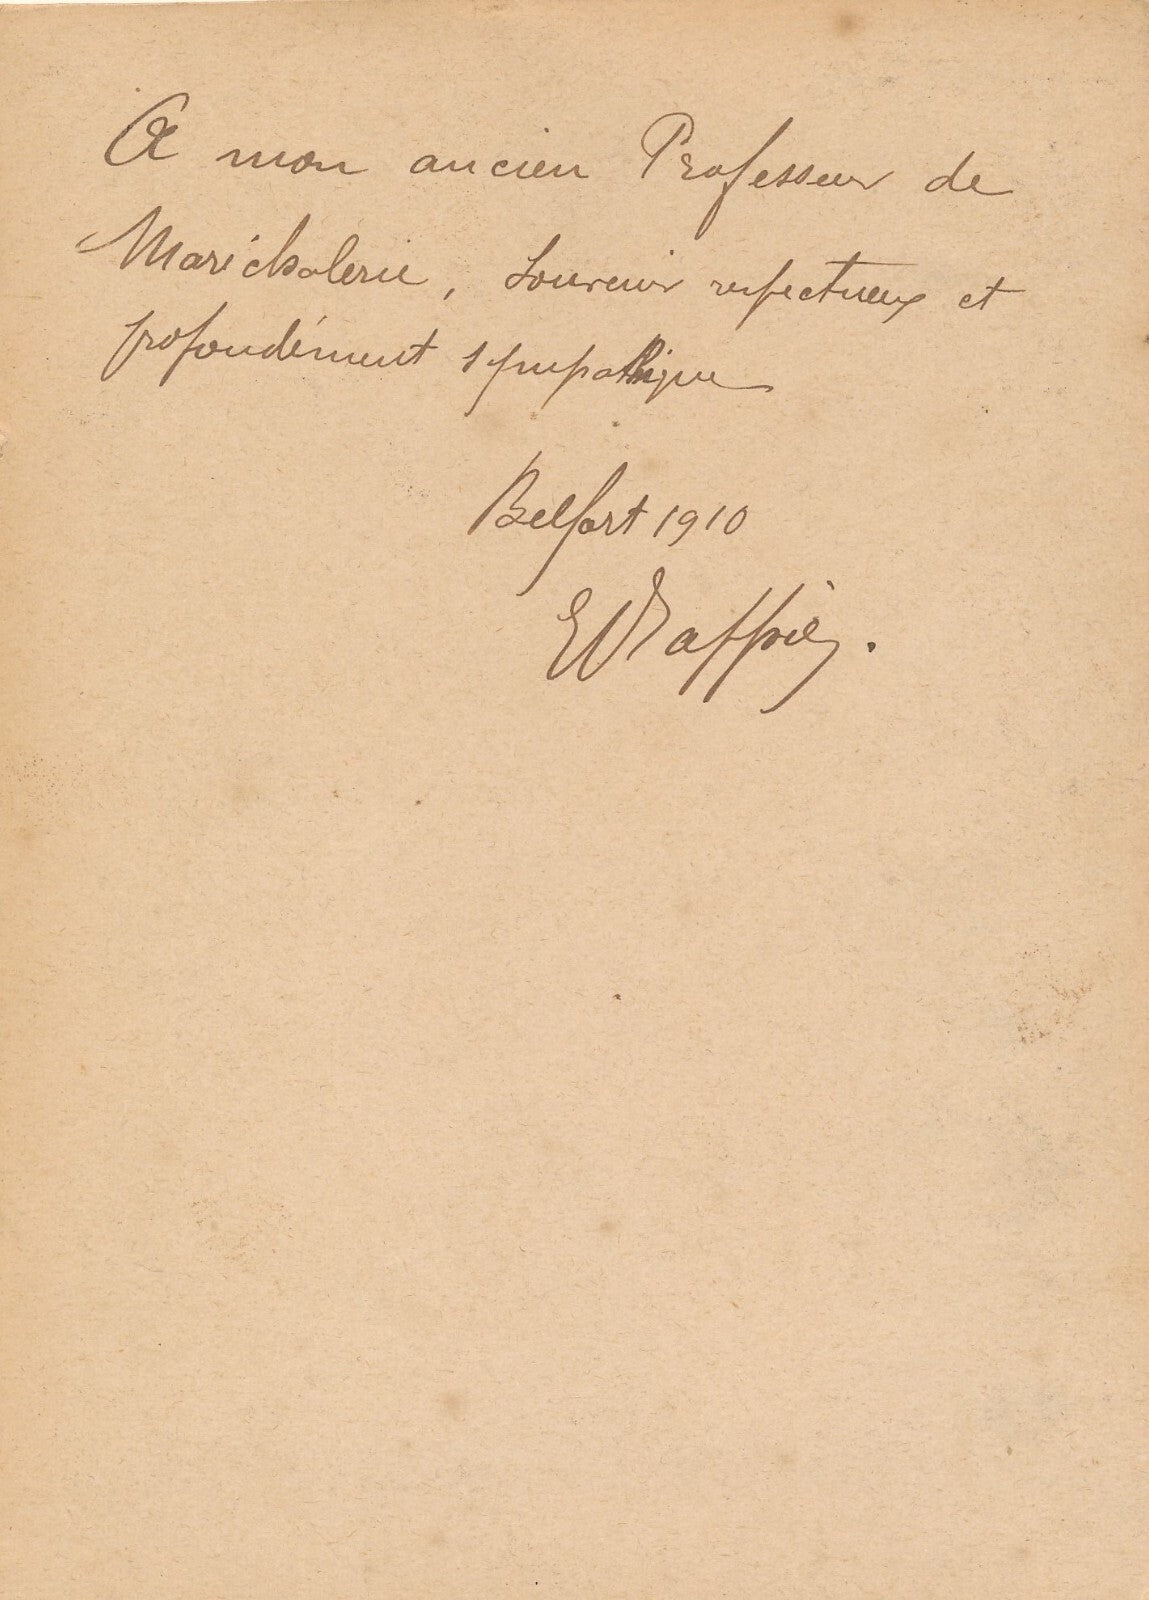 A mon ancien Professeur de
Maréchalerie, Souvenir respectueux et
profondément sympathique
Belfort 1910